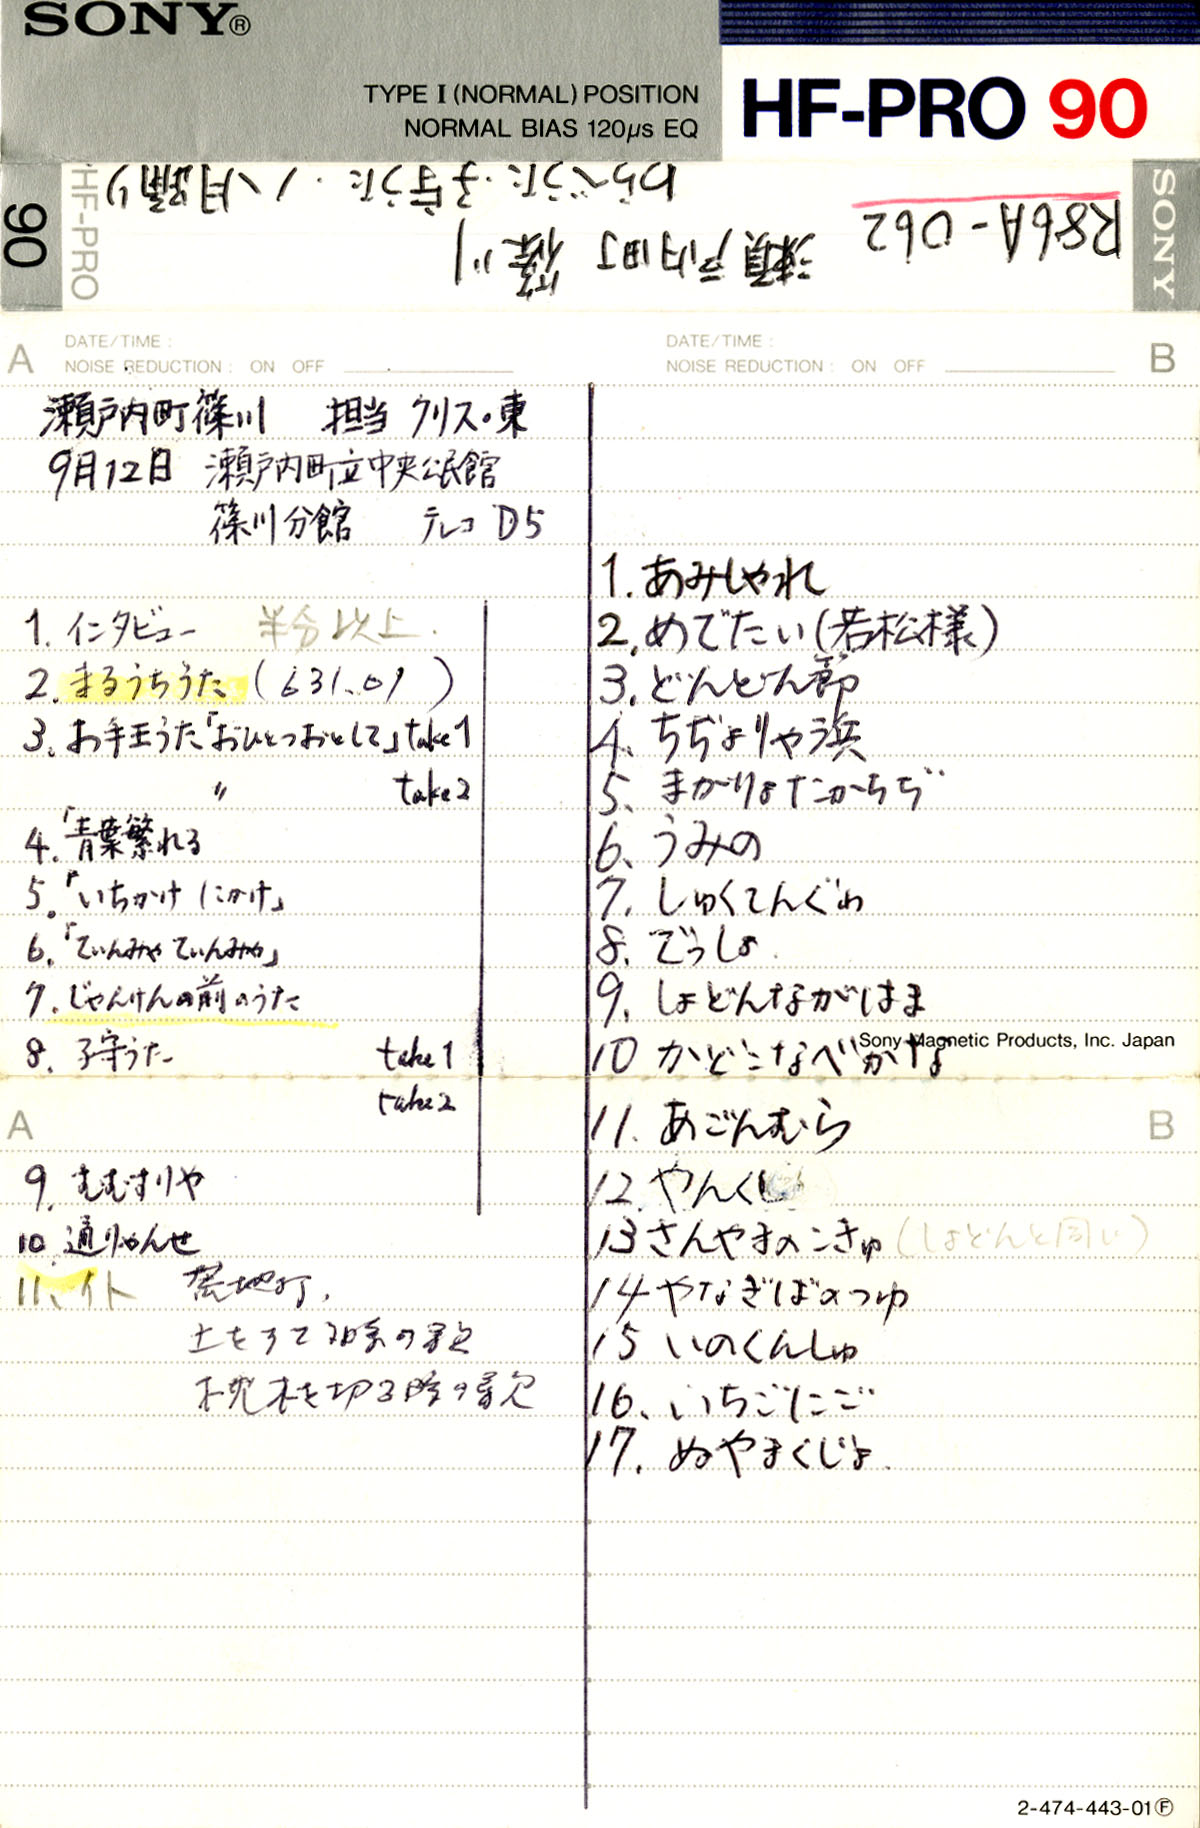 SONY®
TYPE I (NORMAL) POSITION
NORMAL BIAS 120µs EQ
HF-PRO 90
SONY
R86A-062
瀬戸内町 篠川
わらべうた・子守うた・八月踊り
HF-PRO
90
A
DATE/TIME :
NOISE REDUCTION : ON OFF
瀬戸内町篠川 担当 クリス・東
9月12日 瀬戸内町立中央公民館
篠川分館 テレコ D5
1. インタビュー 半分以上.
2. まるうちうた (631.01)
3. お手玉うた「おひとつおとして」take1
〃 take2
4.「青葉繁れる
5.「いちかけ にかけ」
6.「てぃんみゃ てぃんみゃ」
7. じゃんけんの前のうた
8. 子守うた take1
take2
A
9. むむすりや
10. 通りゃんせ
11. イト
土をすてる時の
木を切る時の
B
DATE/TIME :
NOISE REDUCTION : ON OFF
1. あみしゃれ
2. めでたい(若松様)
3. どんどん節
4. ちぢょりゃ浜
5. まかりょたかちぢ
6. うみの
7. しゅくてんぐゎ
8. でっしょ.
9. しょどんながはま
Sony Magnetic Products, Inc. Japan
10 かどこなべがなよ
11. あごんむら
B
12. やんくい
13 さんやまのこきゅ(しょどんと同じ)
14 やなぎばのつゆ
15 いのくんしゅ
16. いちごにご
17. ぬやまくじょ.
2-474-443-01Ⓕ